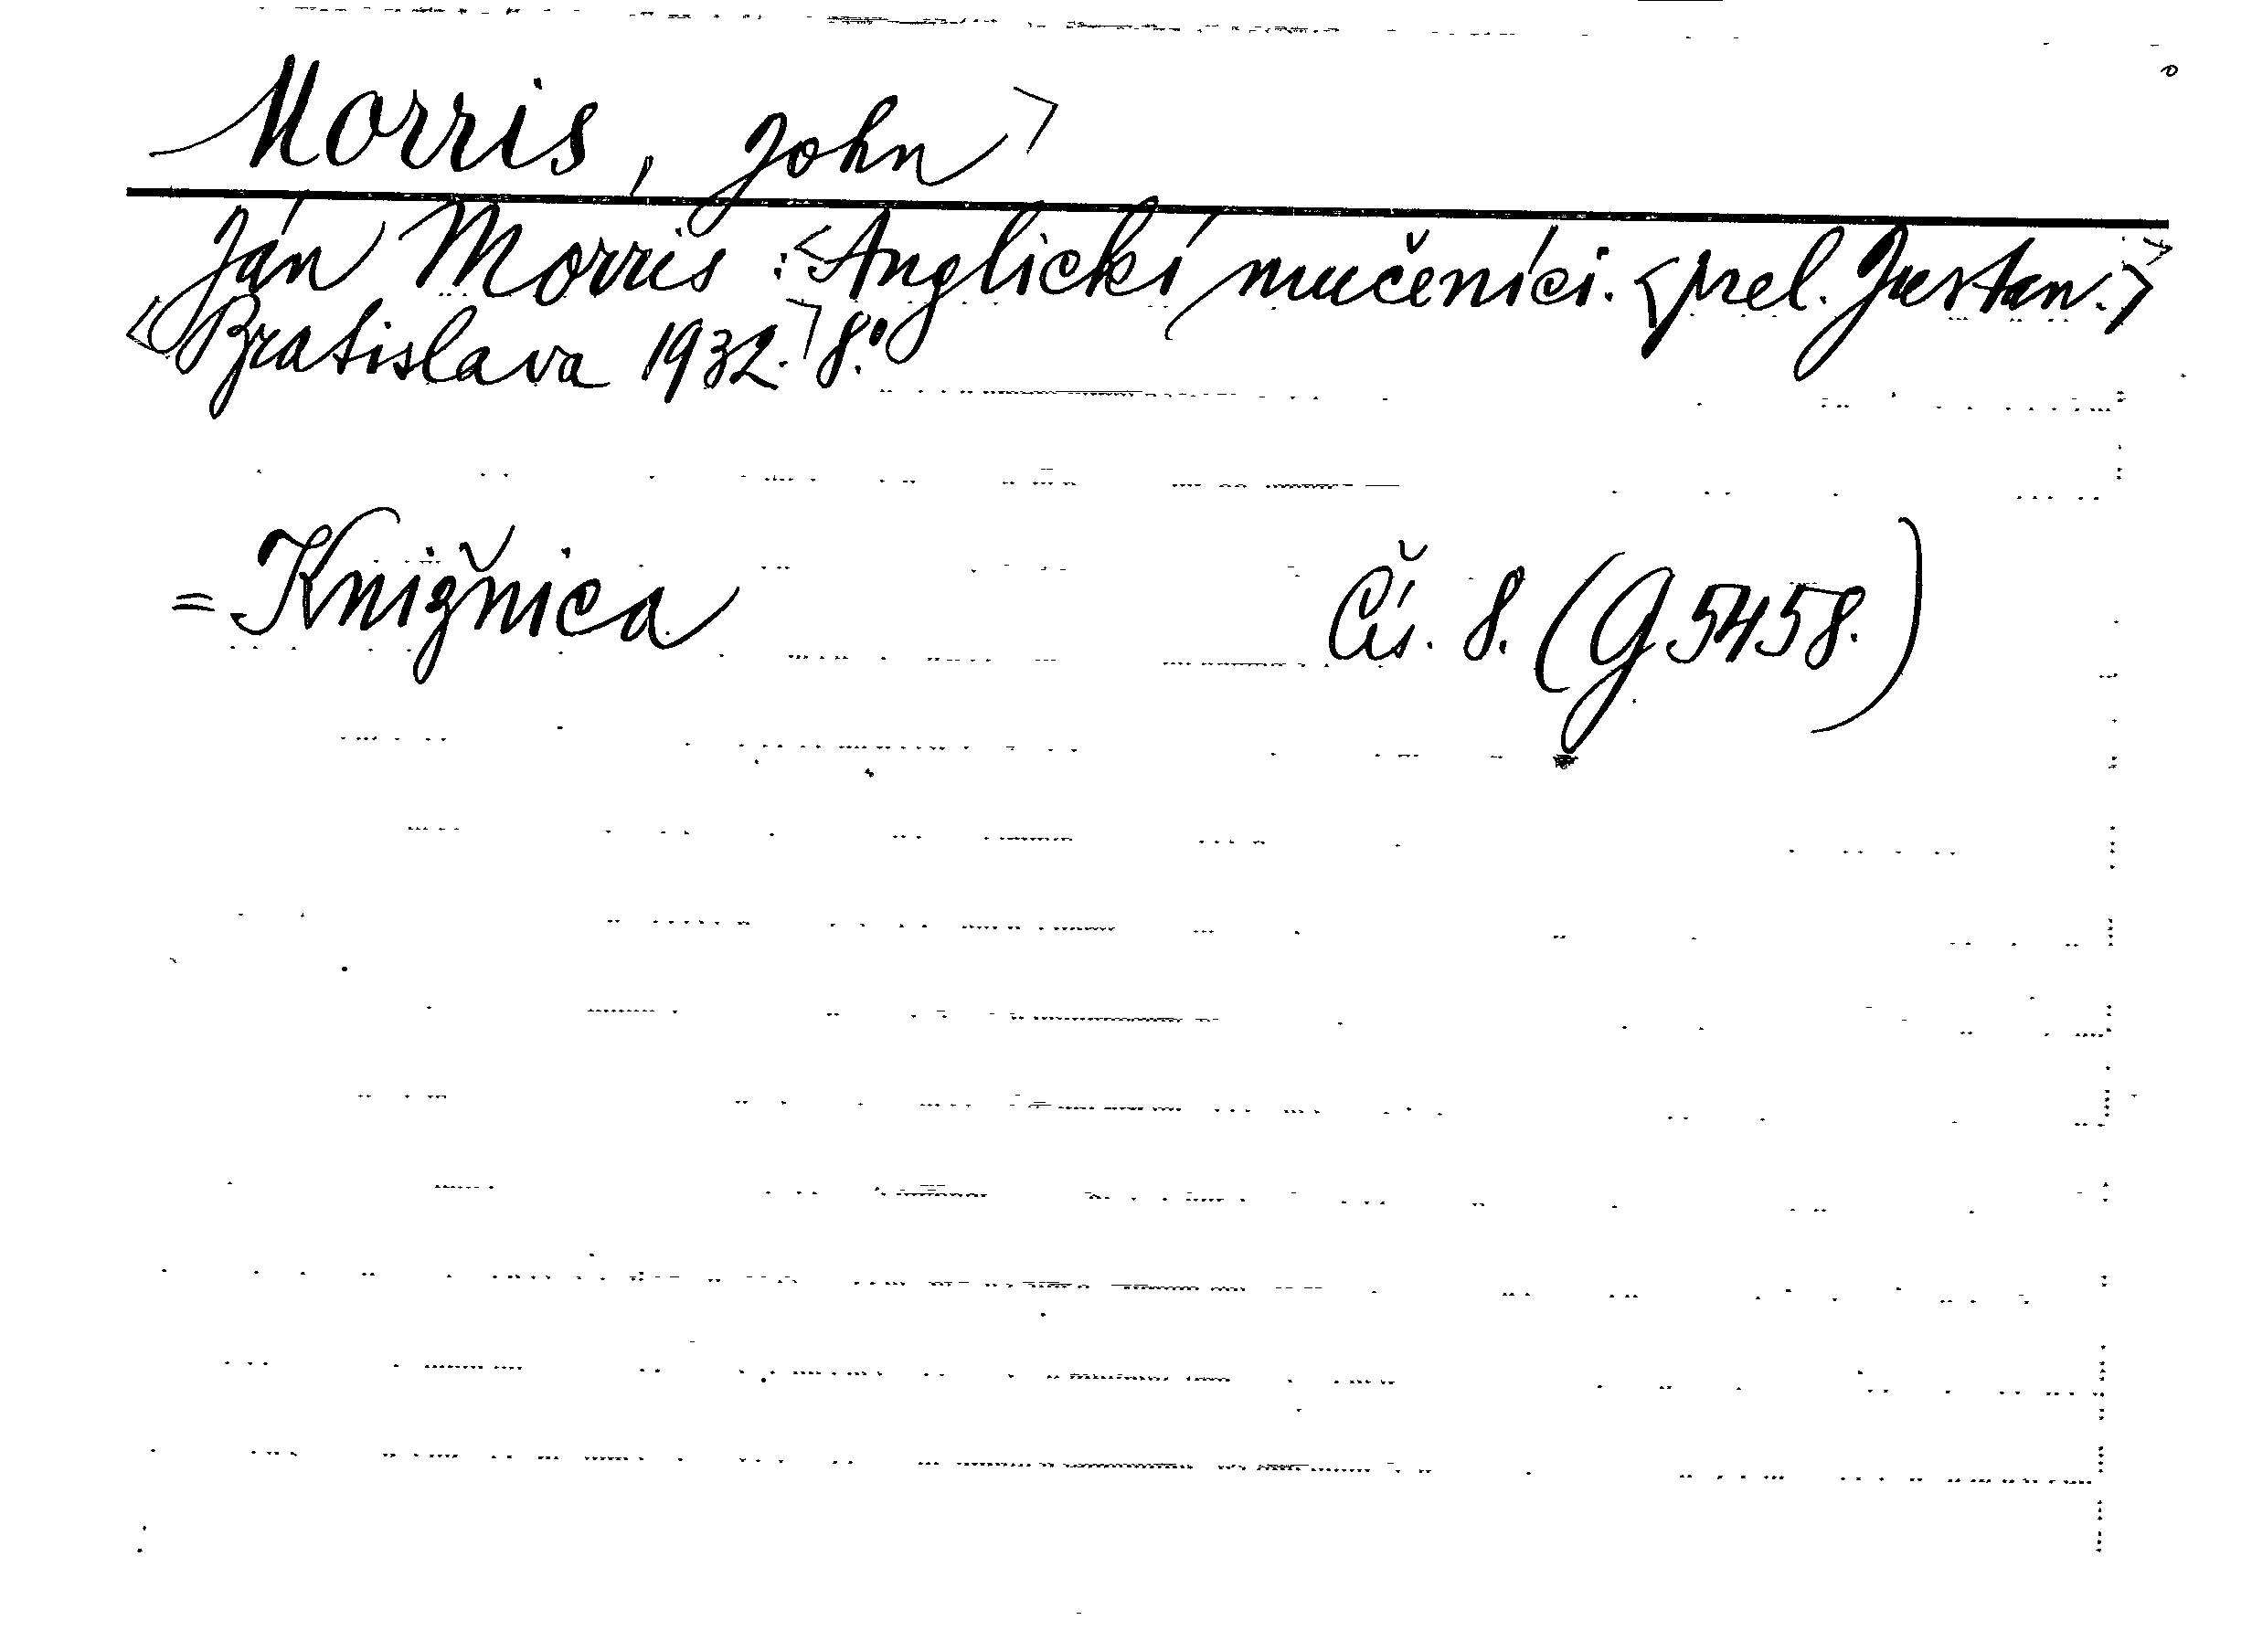 Morris, John>
Ján Morris :<Anglickí mučeníci. <prel. Justan.>>
<Bratislava 1932.> 8.°
= Knižnica Čís. 8. (G 5458.)